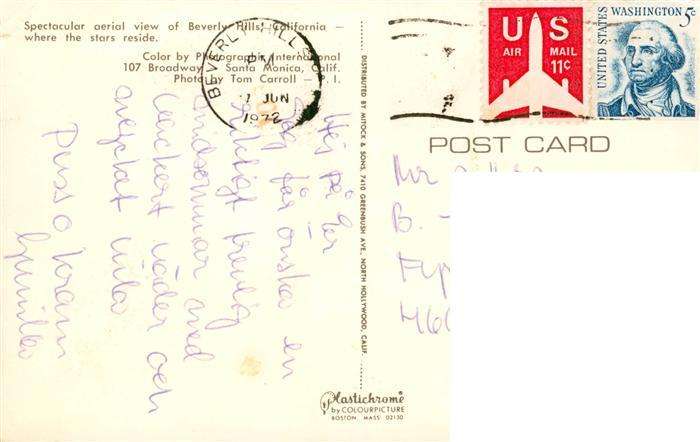 Spectacular aerial view of Beverly Hills, California –
where the stars reside.
Color by Photographic International
107 Broadway – Santa Monica, Calif.
Photo by Tom Carroll – P. I.
BEVERLY HILLS
PM
1 JUN
1972
US
AIR MAIL
11¢
UNITED STATES
WASHINGTON 5¢
POST CARD
DISTRIBUTED BY MITOCK & SONS, 7410 GREENBUSH AVE., NORTH HOLLYWOOD, CALIF.
Hej på Er
Jag får önska en
riktigt trevlig
midsommar med
vackert väder och
Puss o kram
Gunilla
Mr
B.
Plastichrome
by COLOURPICTURE
BOSTON, MASS 02130